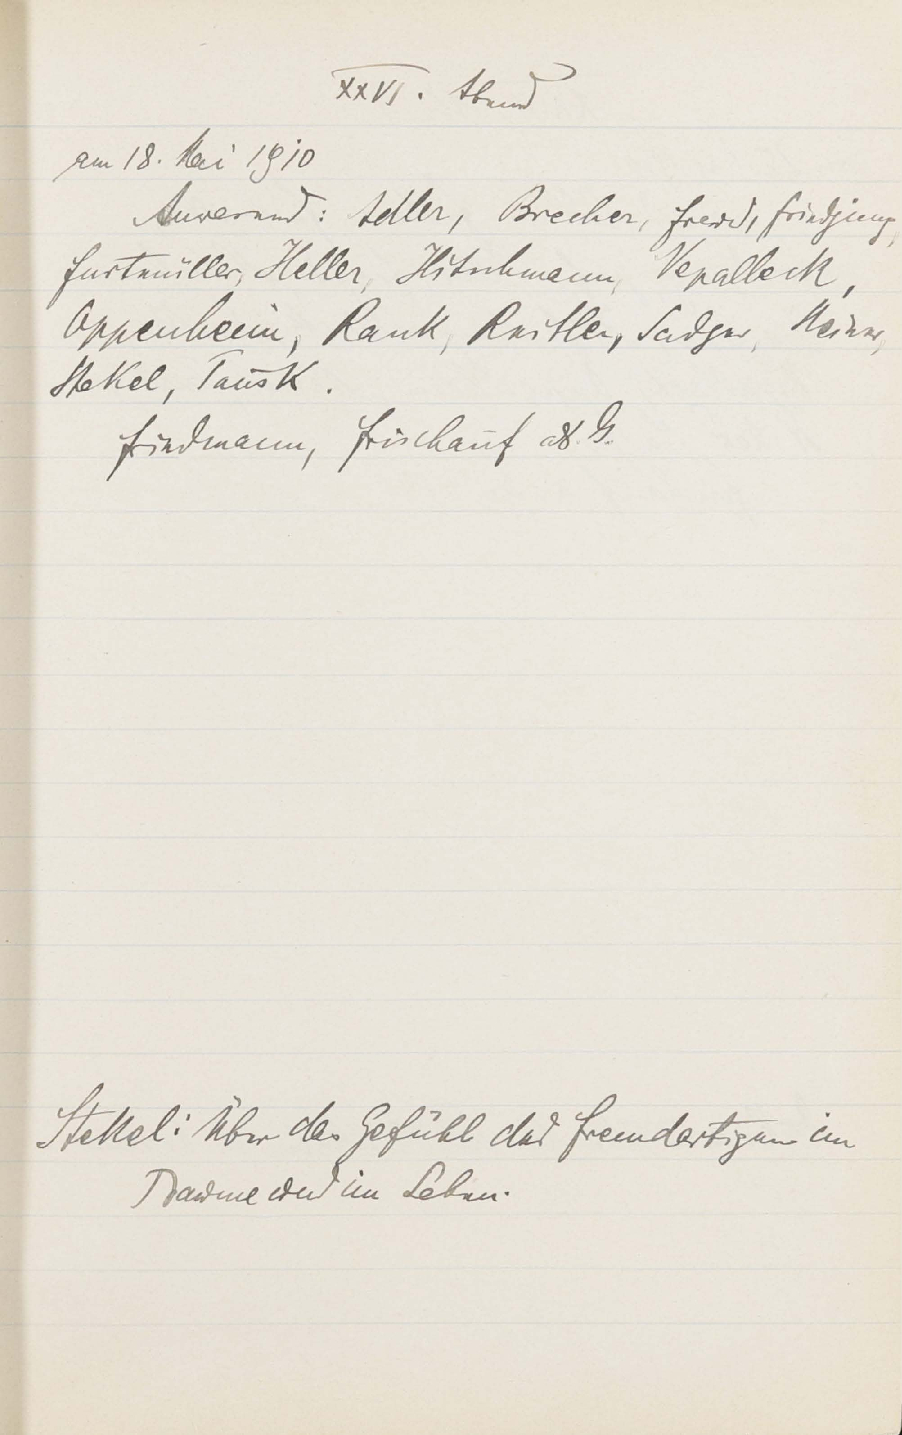 XXVI. Abend
am 18. Mai 1910
Anwesend: Adler, Brecher, Freud, Friedjung,
Furtmüller, Heller, Hitschmann,
Oppenheim, Rank, Reitler, Sadger, Steiner,
Stekel, Tausk.
Friedmann, Frischauf als G.
Stekel: Über das Gefühl des Fremdartigen im
Traume und im Leben.